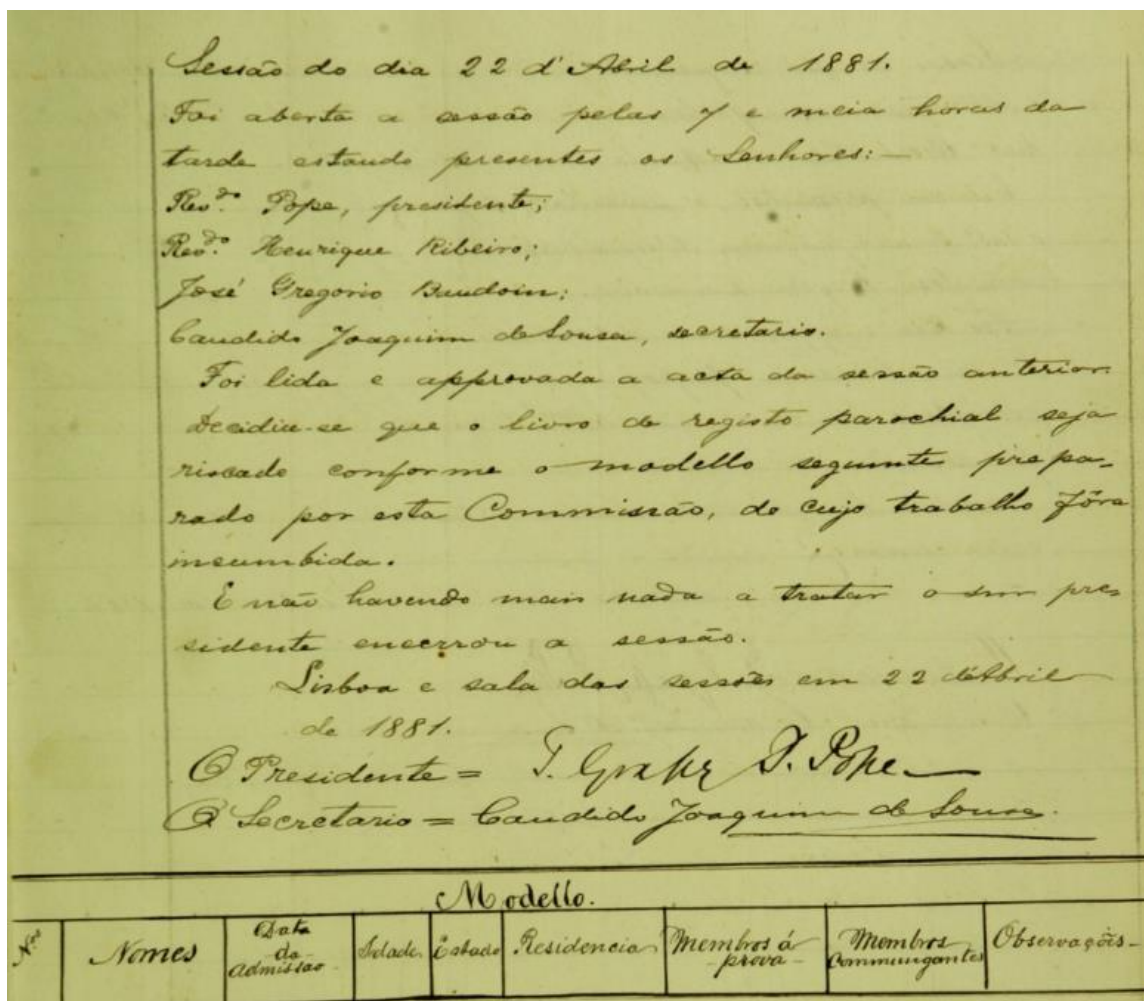 Sessão do dia 22 d'Abril de 1881.
Foi aberta a sessão pelas 7 e meia horas da
tarde estando presentes os Senhores:
Revdo. Pope, presidente;
Revdo. Henrique Ribeiro;
José Gregorio Baudoin;
Candido Joaquim de Sousa, secretario.
Foi lida e approvada a acta da sessão anterior.
Decidiu-se que o livro de registo parochial seja
riscado conforme o modello seguinte prepa-
rado por esta Commissão, de cujo trabalho fôra
incumbida.
E não havendo mais nada a tratar o snr pre
sidente encerrou a sessão.
Lisboa e sala das sessões em 22 d'Abril
de 1881.
O Presidente = T. Godfrey P. Pope
O Secretario = Candido Joaquim de Sousa.
Modello.
Nos Nomes Data da admissão Idade Estado Residencia Membros á prova Membros Commungantes Observações